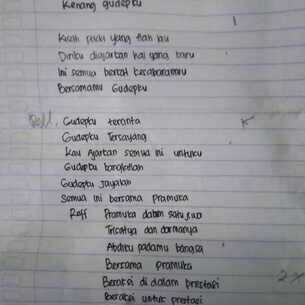 Kenang gudepku
Kisah pada yang tlah lalu
Diriku diajarkan hal yang baru
Ini semua berkat
Bersamamu Gudepku
Reff. Gudepku tercinta
Gudepku Tersayang
Kau Ajarkan semua ini untukku
Gudepku bangkitlah
Gudepku Jayalah
Semua ini bersama pramuka
Reff Pramuka dalam satu jiwa
Trisatya dan darmanya
Abdiku padamu bangsa
Bersama pramuka
Beraksi di dalam prestasi
Beraksi untuk prestasi
2x